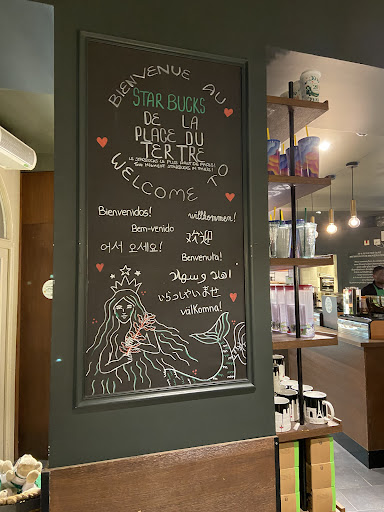 BIENVENUE AU
STARBUCKS
DE LA
PLACE DU
TERTRE
LE STARBUCKS LE PLUS HAUT DE PARIS!
WELCOME TO
Bienvenidos!
willkommen!
Bem-venido
欢迎
어서 오세요!
Benvenuta!
اهلا و سهلا
いらっしゃいませ
välkomna!